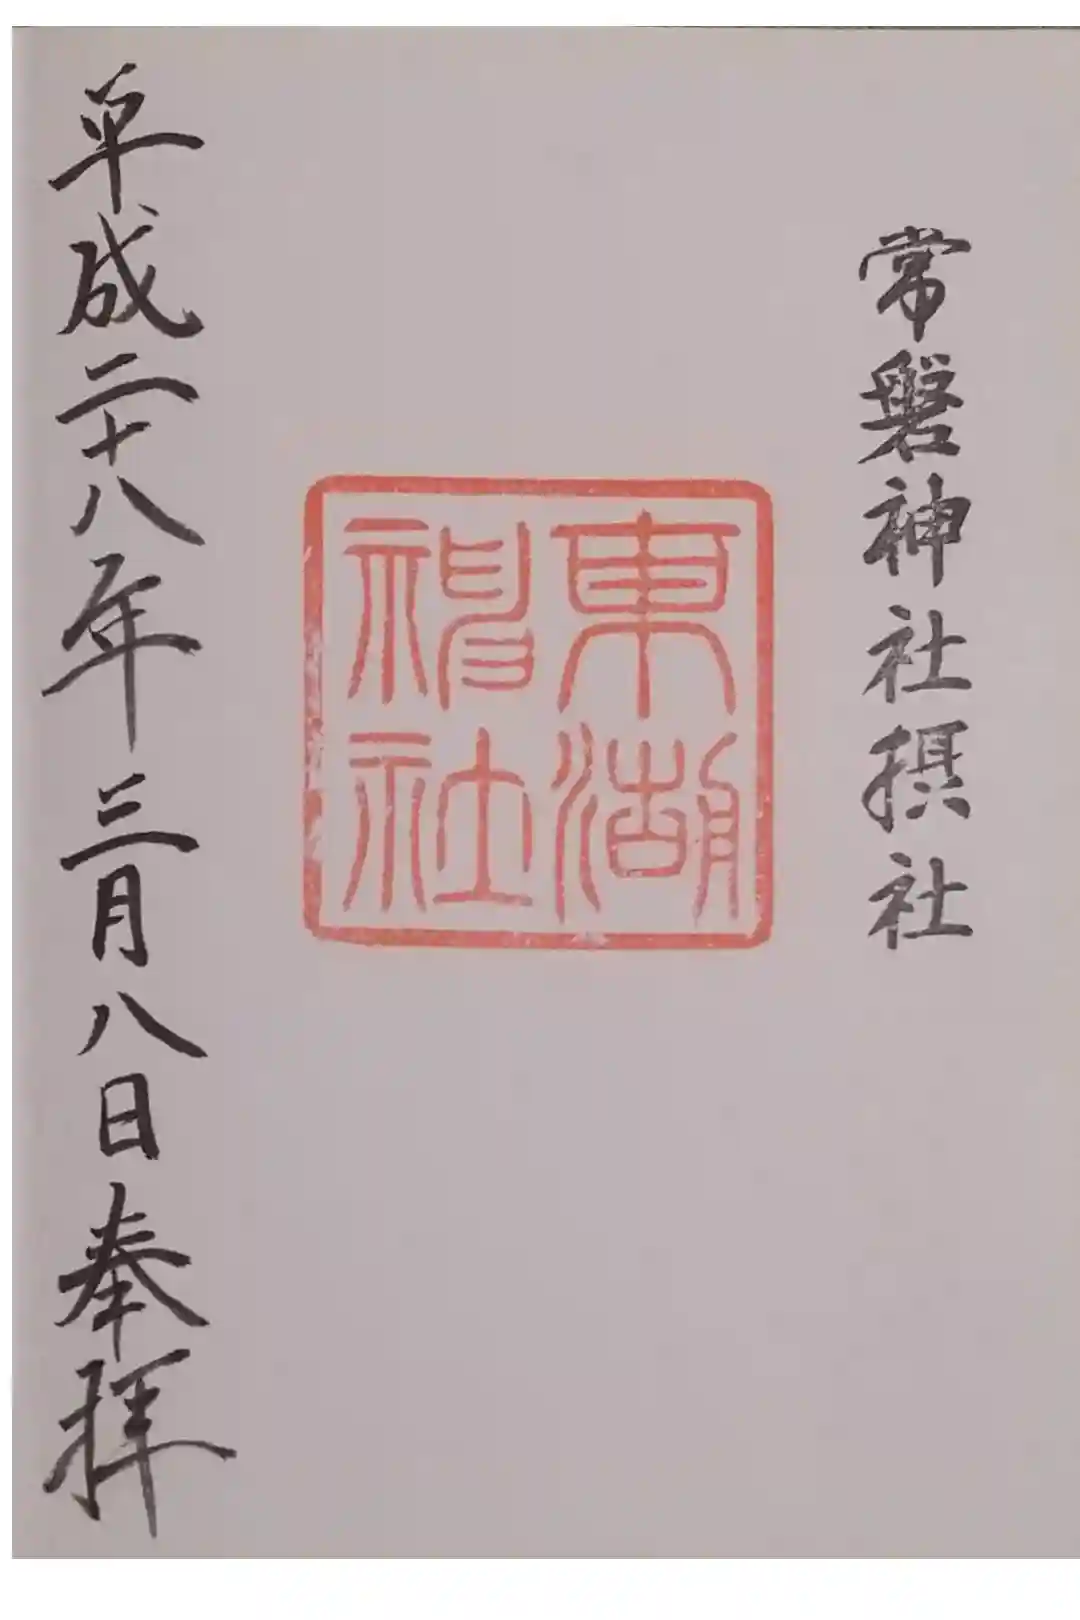 常磐神社摂社
東湖
神社
平成二十八年三月八日奉拝